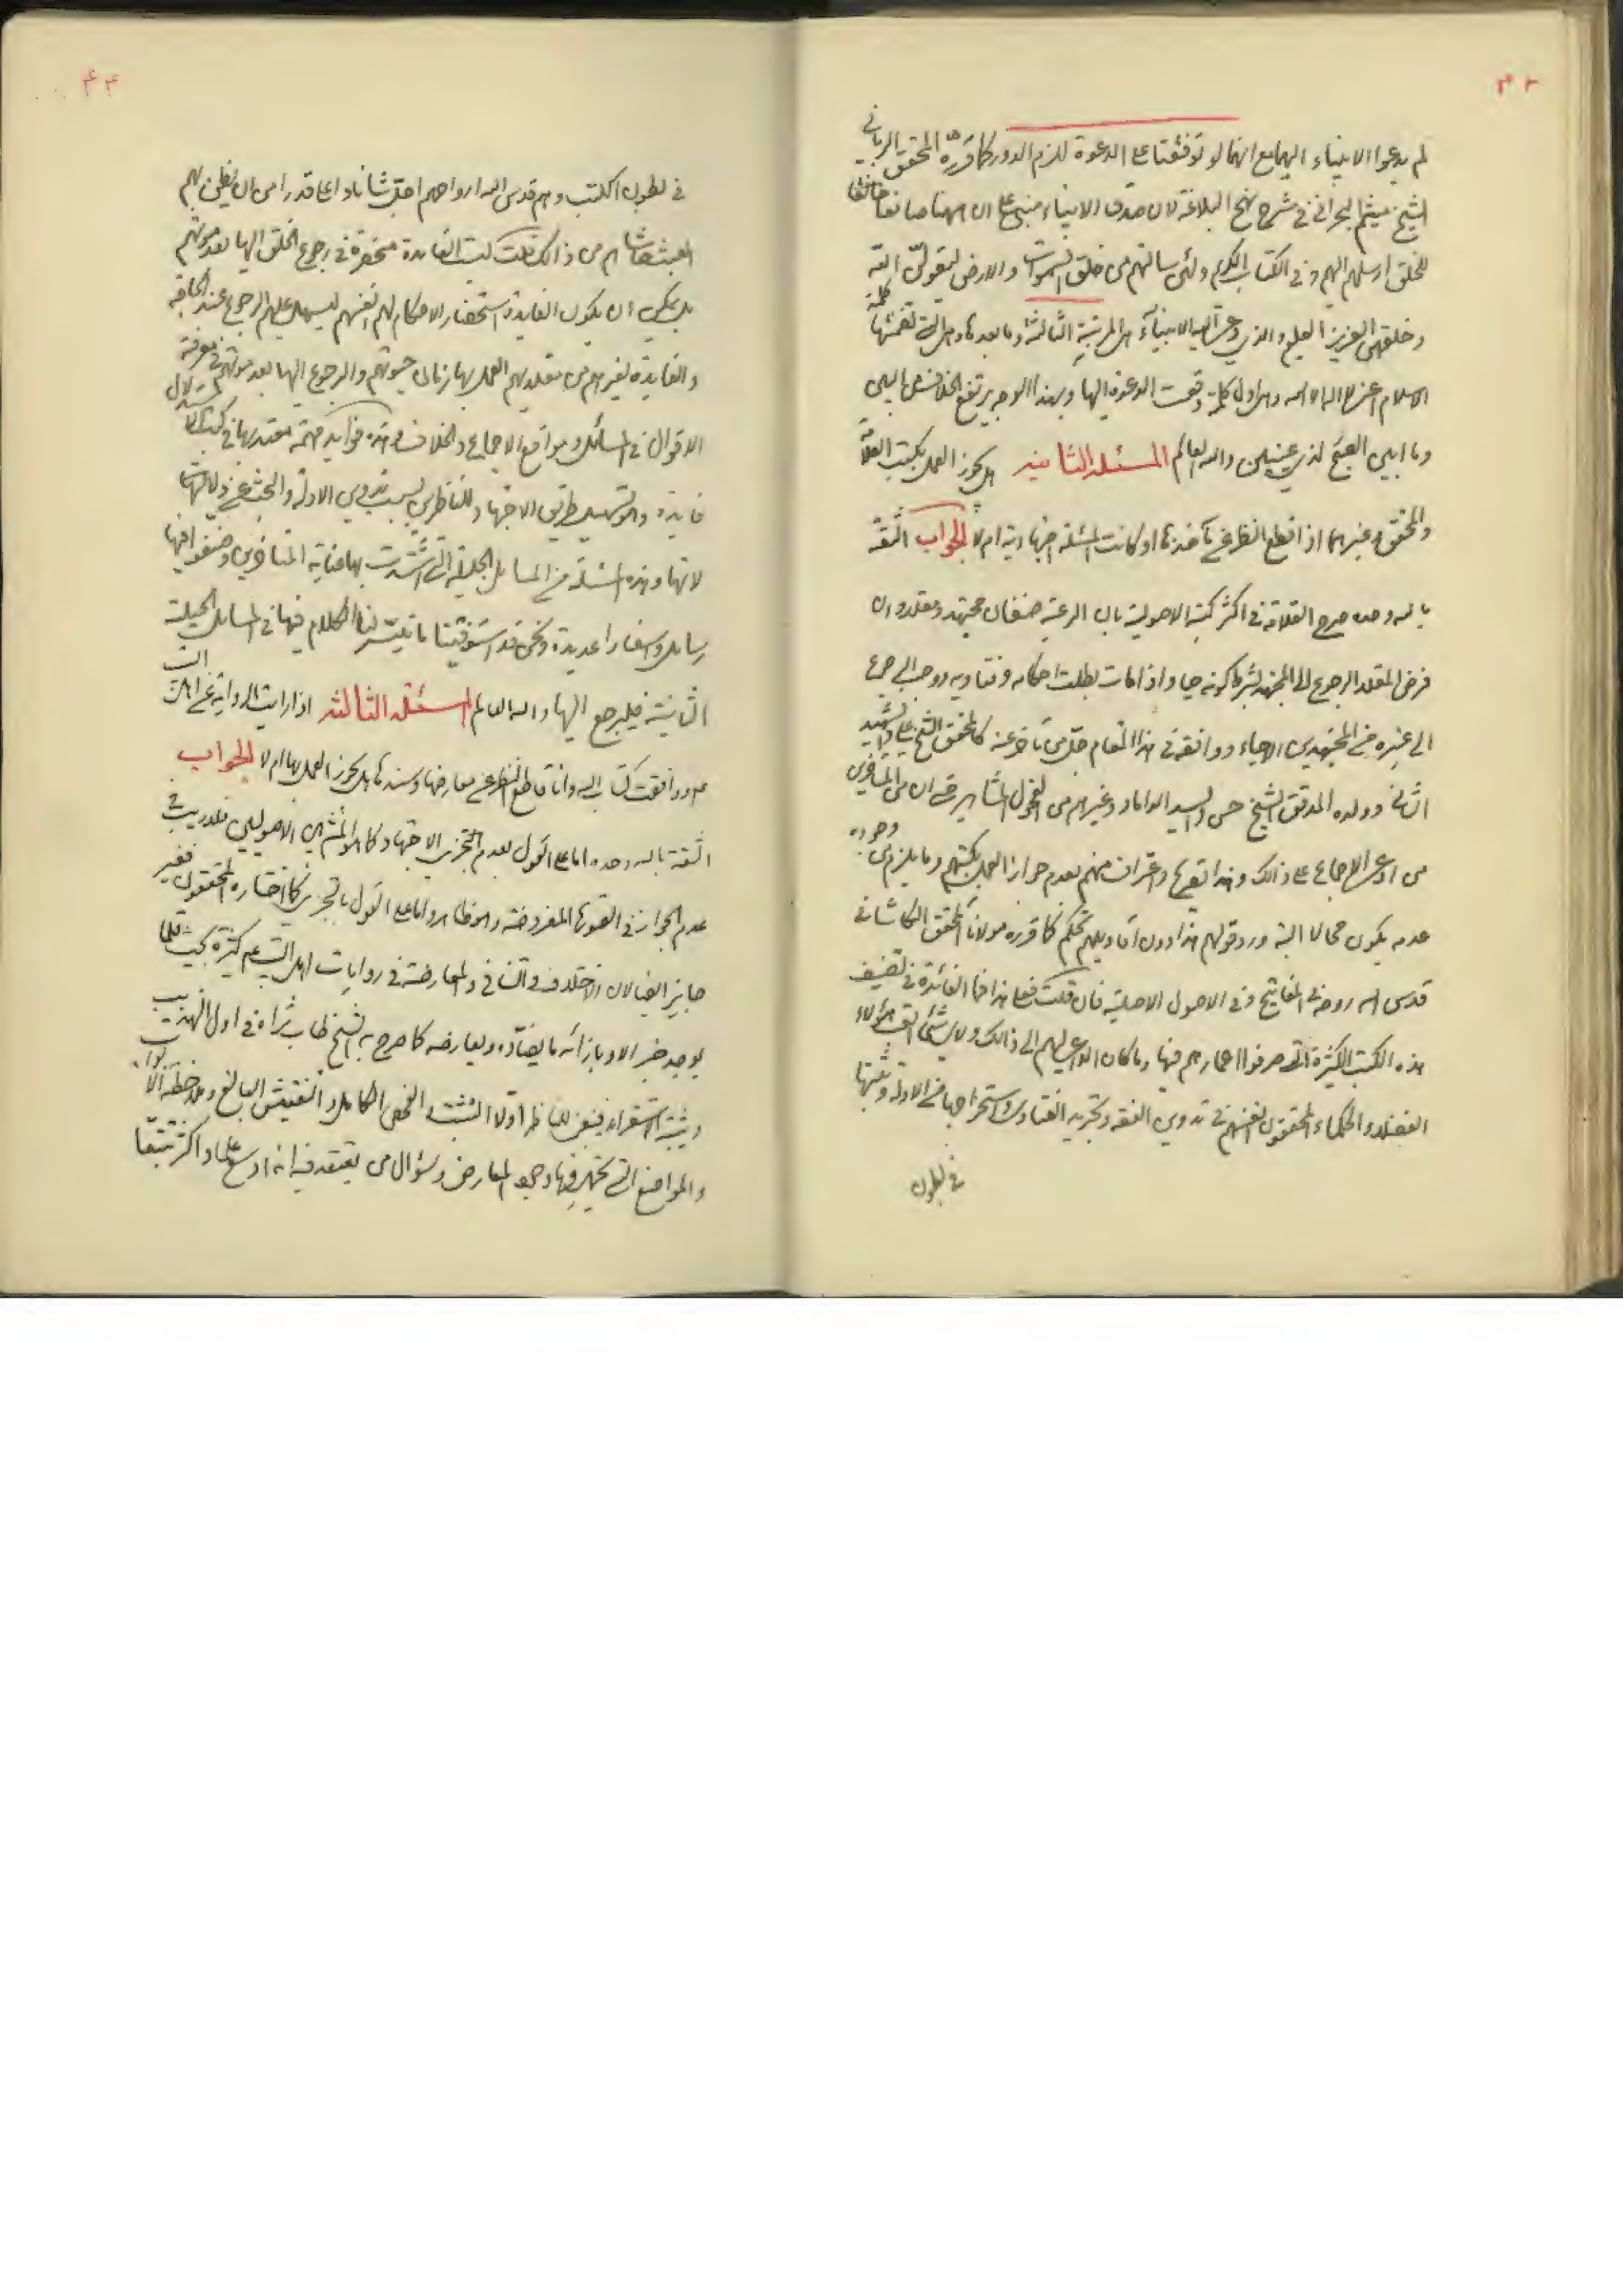 ٤٣
لم يدعوا الانبياء اليها مع انها لو توقفتا على الدعوة للزم الدور كما قرره المحقق الرباني
الشيخ ميثم البحراني في شرح نهج البلاغة لان صدق الانبياء مبني على ان ههنا صانعا خالقا
للخلق ارسلهم اليهم وفي الكتاب الكريم ولئن سالتهم من خلق السموات والارض ليقولن الله
وخلقهن العزيز العليم والذي دعت اليه الانبياء هي المرتبة الثالثة وما بعدها وهي التي تضمنتها كلمة
الاسلام اعني لا اله الا الله وهي اول كلمة وقعت الدعوة اليها وبهذا الوجه يرتفع الخلاف من البين
وما ابين الصبح لذي عينين والله العالم المسئلة الثانية هل يجوز العمل بكتب العلامة
والمحقق وغيرهما اذا قطع النظر عن مأخذها او كانت المسئلة اجتهادية ام لا الجواب الثقة
بالله وحده صرح العلامة في اكثر كتبه الاصولية بان الرعية صنفان مجتهد ومقلد وان
فرض المقلد الرجوع الى المجتهد بشرط كونه حيا واذا مات بطلت احكامه وفتاويه ووجب الرجوع
الى غيره من المجتهدين الاحياء ووافقه في هذا المقام جل من تأخر عنه كالمحقق الشيخ علي والشهيد
الثاني وولده المدقق الشيخ حسن والسيد الداماد وغيرهم من الفحول المشاهير حتى ان من المتأخرين
من ادعى الاجماع على ذالك وهذا تصريح واعتراف منهم بعدم جواز العمل بكتبهم وما يلزم من وجوده
عدمه يكون محالا البتة ورد قولهم هذا دون اقاويلهم تحكم كما قرره مولانا المحقق الكاشاني
قدس الله روحه في المفاتيح وفي الاصول الاصلية فان قلت فعلى هذا فما الفائدة في تصنيف
هذه الكتب الكثيرة التي صرفوا اعمارهم فيها وما كان الداعي لهم الى ذالك ولاي شئ اتعب هؤلاء
الفضلاء والحكماء المحققون انفسهم في تدوين الفقه وتجريد الفتاوى واستخراجها من الادلة وتثبتها
في بطون
٤٤
في بطون الكتب وهم قدس الله ارواحهم اجل شانا واعلى قدرا من ان يظن بهم
العبث حاشاهم من ذالك قلت ليست الفايدة منحصرة في رجوع الخلق اليها بعد موتهم
بل يمكن ان يكون الفايدة استحضار الاحكام لهم انفسهم ليسهل عليهم الرجوع عند الحاجة
والفايدة لغيرهم من مقلديهم العمل بها زمان حيوتهم والرجوع اليها بعد موتهم في معرفة
الاقوال في المسائل ومواقع الاجماع والخلاف وهذه فوايد مهمة معتد بها في كتب الاستدلال
فايدة والتسهيل طريق الاجتهاد للناظرين بسبب تدوين الادلة والبحث عن دلالتها
لانها وهذه المسئلة من المسايل الجليلة التي اشتدت بها عناية المتاخرين وصنفوا فيها
رسايل واسفارا عديدة ونحن قد استوفينا ما تيسر لنا الكلام فيها في المسايل الجبلية
الثانية فليرجع اليها والله العالم المسئلة الثالثة اذا رايت الرواية عن اهل البيت
ع م ووافقت كتاب الله وانا قاطع النظر عن معارضها وسندها هل يجوز العمل بها ام لا الجواب
الثقة بالله وحده اما على القول بعدم التجزي الاجتهاد كما هو المشهور بين الاصوليين فلا ريب في
عدم الجواز في الصورة المفروضة وهو ظاهر واما على القول بالتجزي كما اختاره المحققون فغير
جايز ايضا لان الاختلاف والتنافي والمعارضة في روايات اهل البيت ع م كثيرة بحيث قلما
يوجد خبر الا وبازائه ما يضاده ويعارضه كما صرح به الشيخ طاب ثراه في اول التهذيب
ويثبته الاستقراء فينبغي للناظر اولا التثبت والفحص الكامل والتفتيش البالغ وملاحظة الابواب
والمواضع التي تحتمل فيها وجود المعارض وسؤال من يعتقد فيه انه اوسع علما واكثر تتبعا